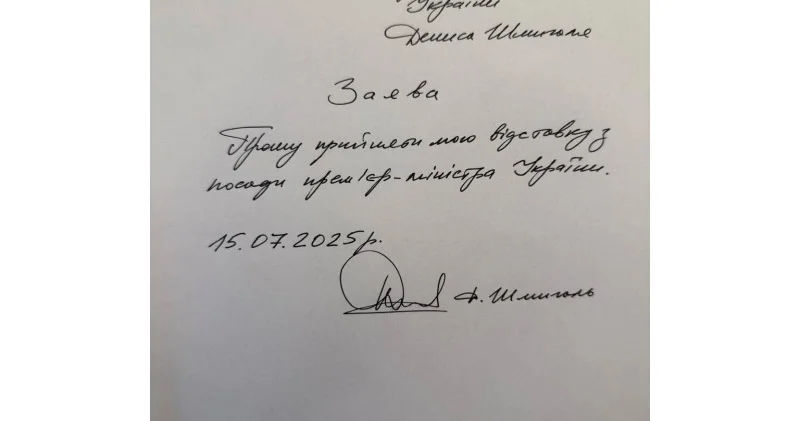 України
Дениса Шмигаля
Заява
Прошу прийняти мою відставку з
посади прем'єр-міністра України.
15.07.2025р.
Д. Шмигаль